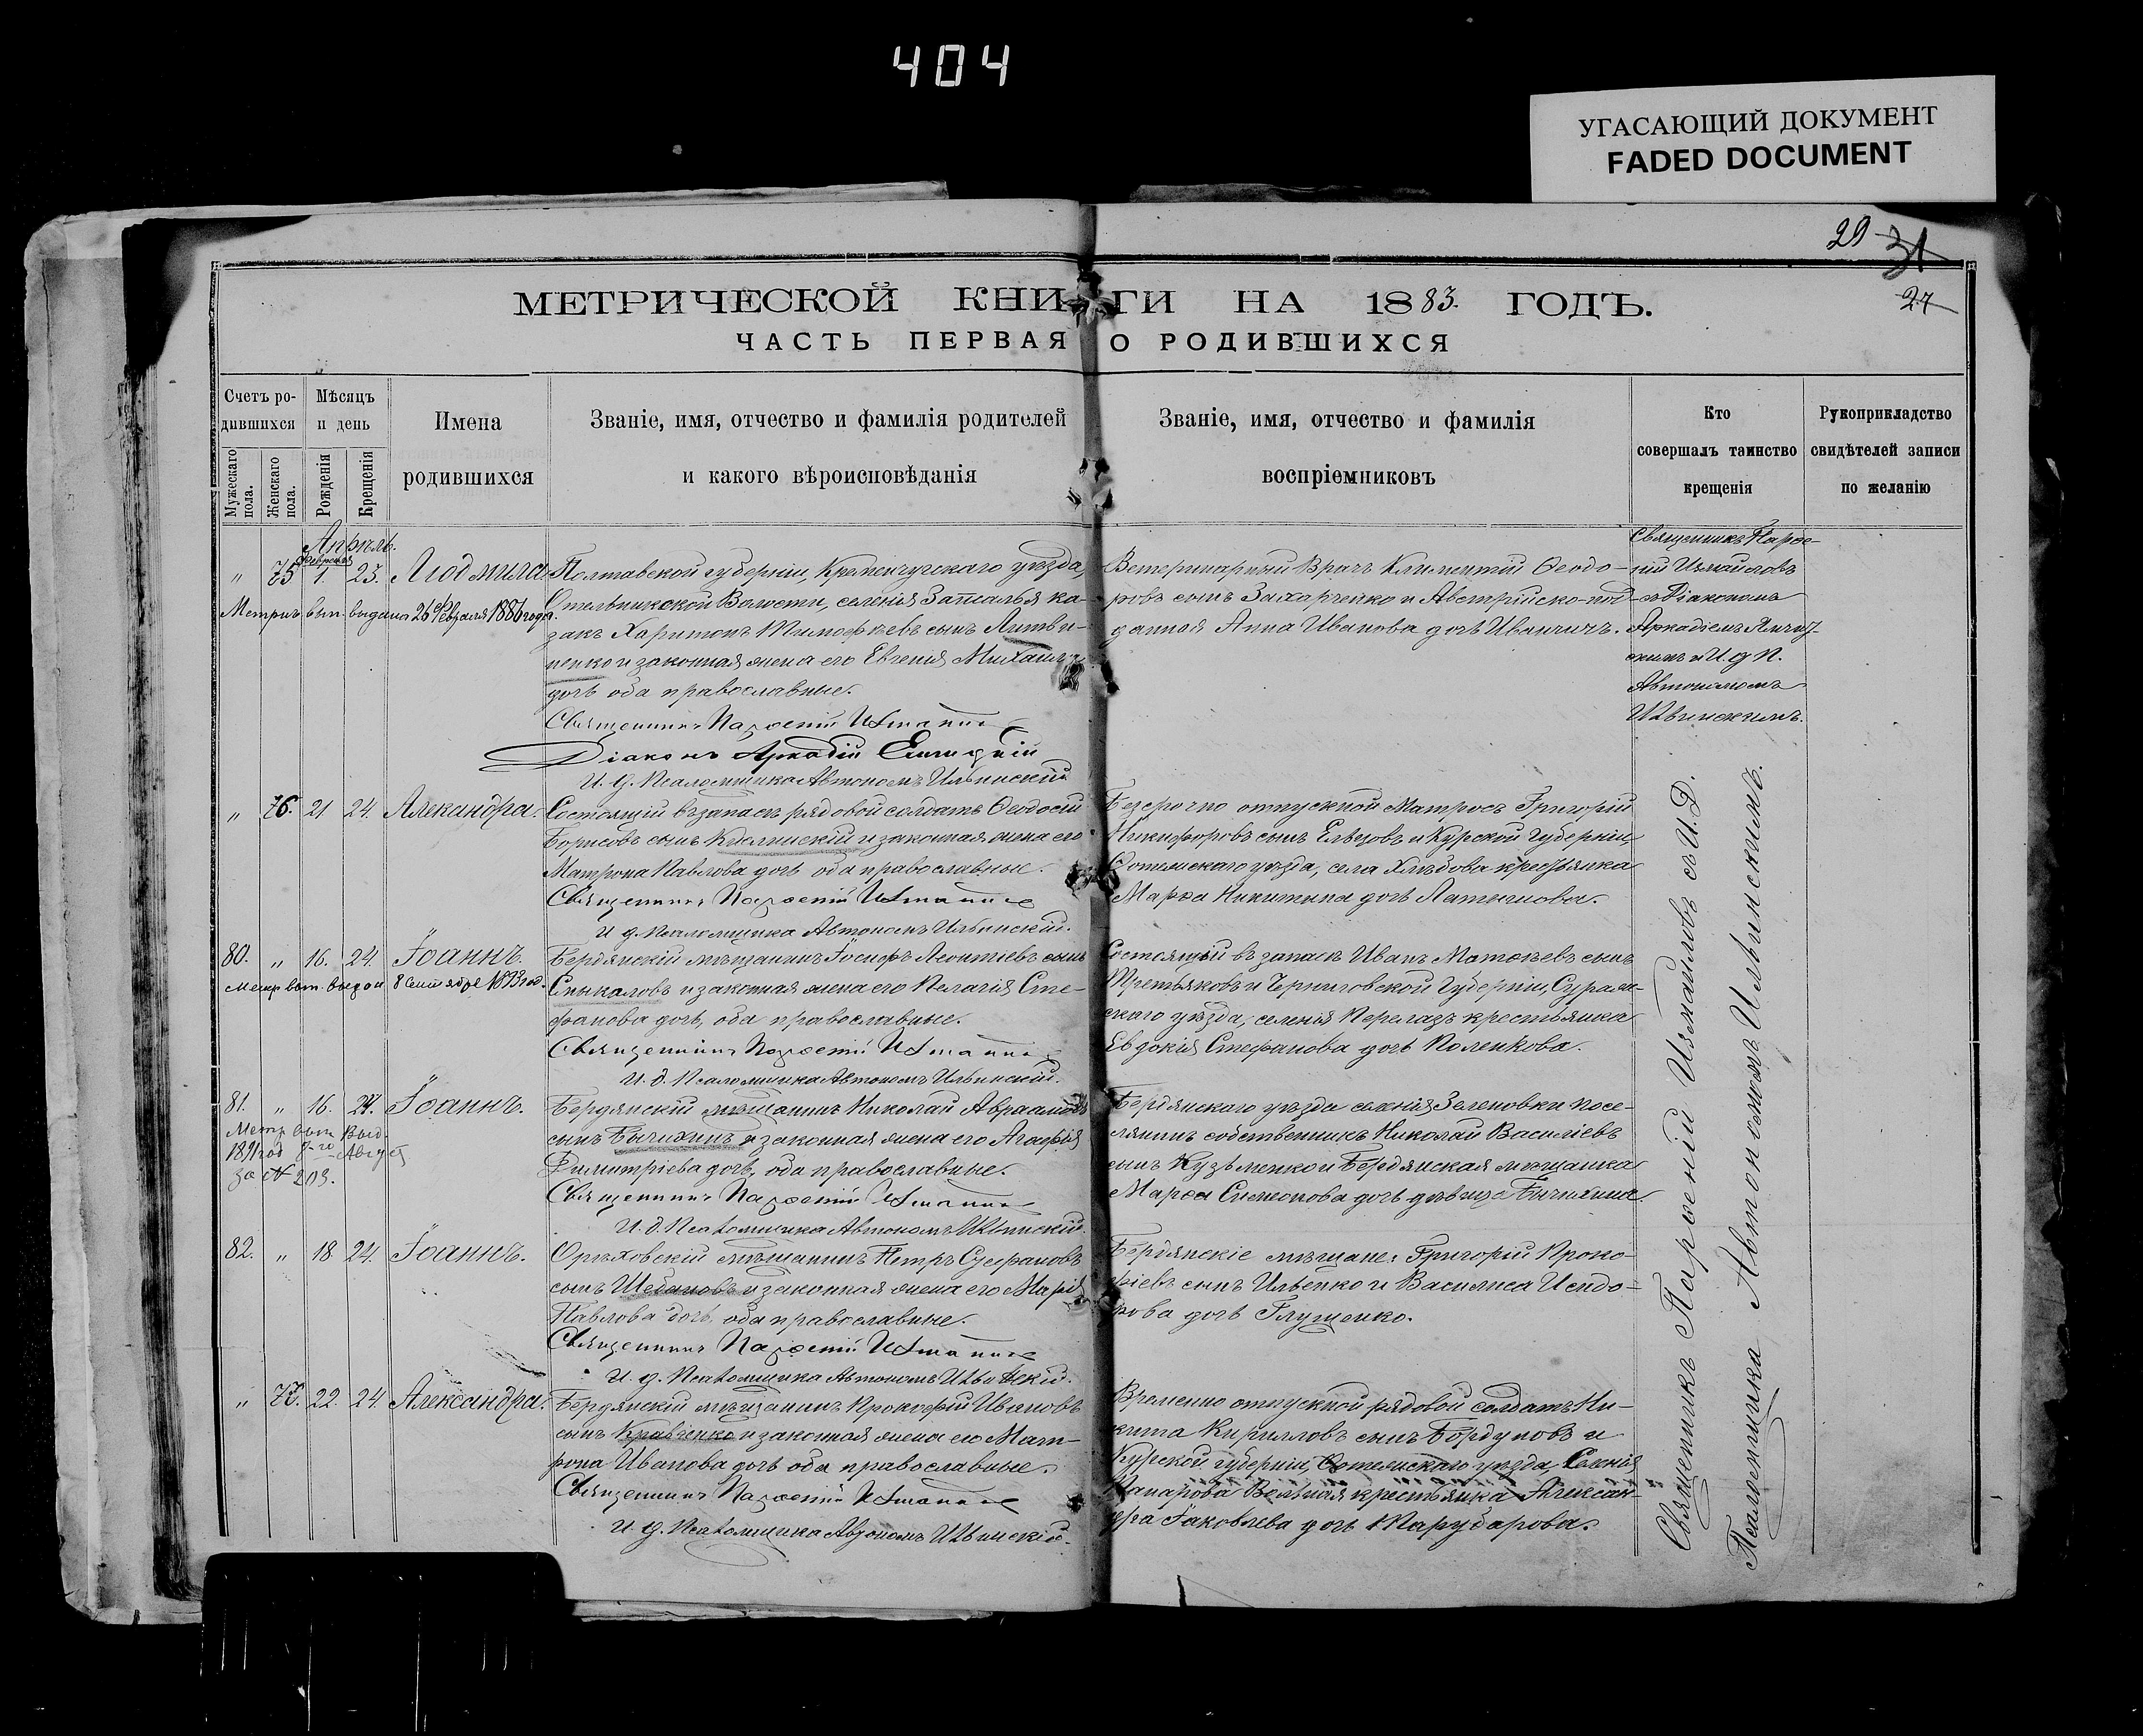 404
УГАСАЮЩИЙ ДОКУМЕНТ
FADED DOCUMENT
29 31
27
МЕТРИЧЕСКОЙ КНИГИ НА 1883. ГОДЪ.
ЧАСТЬ ПЕРВАЯ О РОДИВШИХСЯ
Счетъ ро-
дившихся
Мужескаго пола.
Женскаго пола.
Мѣсяцъ
и день
Рожденія
Крещенія
Имена
родившихся
Званіе, имя, отчество и фамилія родителей
и какого вѣроисповѣданія
Званіе, имя, отчество и фамилія
воспріемниковъ
Кто
совершалъ таинство
крещенія
Рукоприкладство
свидѣтелей записи
по желанію
Апрѣль.
Февраля
„ 75 1. 23. Людмила.
Метрич. вып. выдана 26 Февраля 1886 года.
Полтавской губерніи, Кременчугскаго уѣзда,
Волости, селенія ка-
закъ Харитонъ Тимофѣевъ сынъ Литви-
ненко и законная жена его Евгенія
дочь оба православные.
Священникъ Парѳеній
Діаконъ Аркадій
И. д. Псаломщика Автономъ Ильинскій
Ветеринарный Врачъ Климентій Ѳеодо-
ровъ сынъ Захарченко и Австрійско-под-
данная Анна Иванова дочь Иванчичъ.
Священникъ Парѳе-
ній Измаиловъ
съ Діакономъ
Аркадіемъ
и И. д. П.
Автономомъ
Ильинскимъ.
„ 76. 21 24. Александра.
Состоящій въ запасѣ рядовой солдатъ Ѳеодосій
Борисовъ сынъ и законная жена его
Матрона Павлова дочь оба православные.
Священникъ Парѳеній
И. д. Псаломщика Автономъ Ильинскій.
Безсрочно отпускной Матросъ Григорій
Никифоровъ сынъ и Курской Губерніи,
уѣзда, села крестьянка
Марѳа Никитина дочь Латышова.
80. „ 16. 24. Іоаннъ.
Метр. вып. выдан 8 Сентября 1893 год.
Бердянскій мѣщанинъ Іосифъ Леонтіевъ сынъ
и законная жена его Пелагія Сте-
фанова дочь, оба православные.
Священникъ Парѳеній
И. д. Псаломщика Автономъ Ильинскій.
Состоящій въ запасѣ Иванъ Матѳѣевъ сынъ
Третьяковъ и Черниговской Губерніи, Сураж-
скаго уѣзда, селенія Перелазъ крестьянка
Евдокія Стефанова дочь Поленкова.
81. „ 16. 24. Іоаннъ.
Метр. вып. выд.
1891 год 8-го Август
за № 203.
Бердянскій мѣщанинъ Николай Авраамовъ
сынъ Бычихинъ и законная жена его Агафія
Димитріева дочь, оба православные.
Священникъ Парѳеній
И. д. Псаломщика Автономъ Ильинскій.
Бердянскаго уѣзда селенія Зеленовки посе-
лянинъ собственникъ Николай Василіевъ
сынъ Кузьменко и Бердянская мѣщанка
Марѳа Симеонова дочь дѣвица Бычихина.
82. „ 18 24. Іоаннъ.
Орѣховскій мѣщанинъ Петръ Стефановъ
сынъ Шебановъ и законная жена его Марія
Павлова дочь, оба православные.
Священникъ Парѳеній
И. д. Псаломщика Автономъ Ильинскій.
Бердянскіе мѣщане: Григорій Проко-
фіевъ сынъ Ильенко и Василиса Исидо-
рова дочь Глущенко.
„ 77. 22. 24. Александра.
Бердянскій мѣщанинъ Прокофій Ивановъ
сынъ Кравченко и законная жена его Мат-
рона Иванова дочь оба православные.
Священникъ Парѳеній
И. д. Псаломщика Автономъ Ильинскій.
Временно отпускной рядовой солдатъ Ни-
кита Кирилловъ сынъ Бордуновъ и
Курской губерніи, уѣзда, Селенія
крестьянка Алексан-
дра Іаковлева дочь
Священникъ Парѳеній Измаиловъ съ И. Д.
Псаломщика Автономомъ Ильинскимъ.